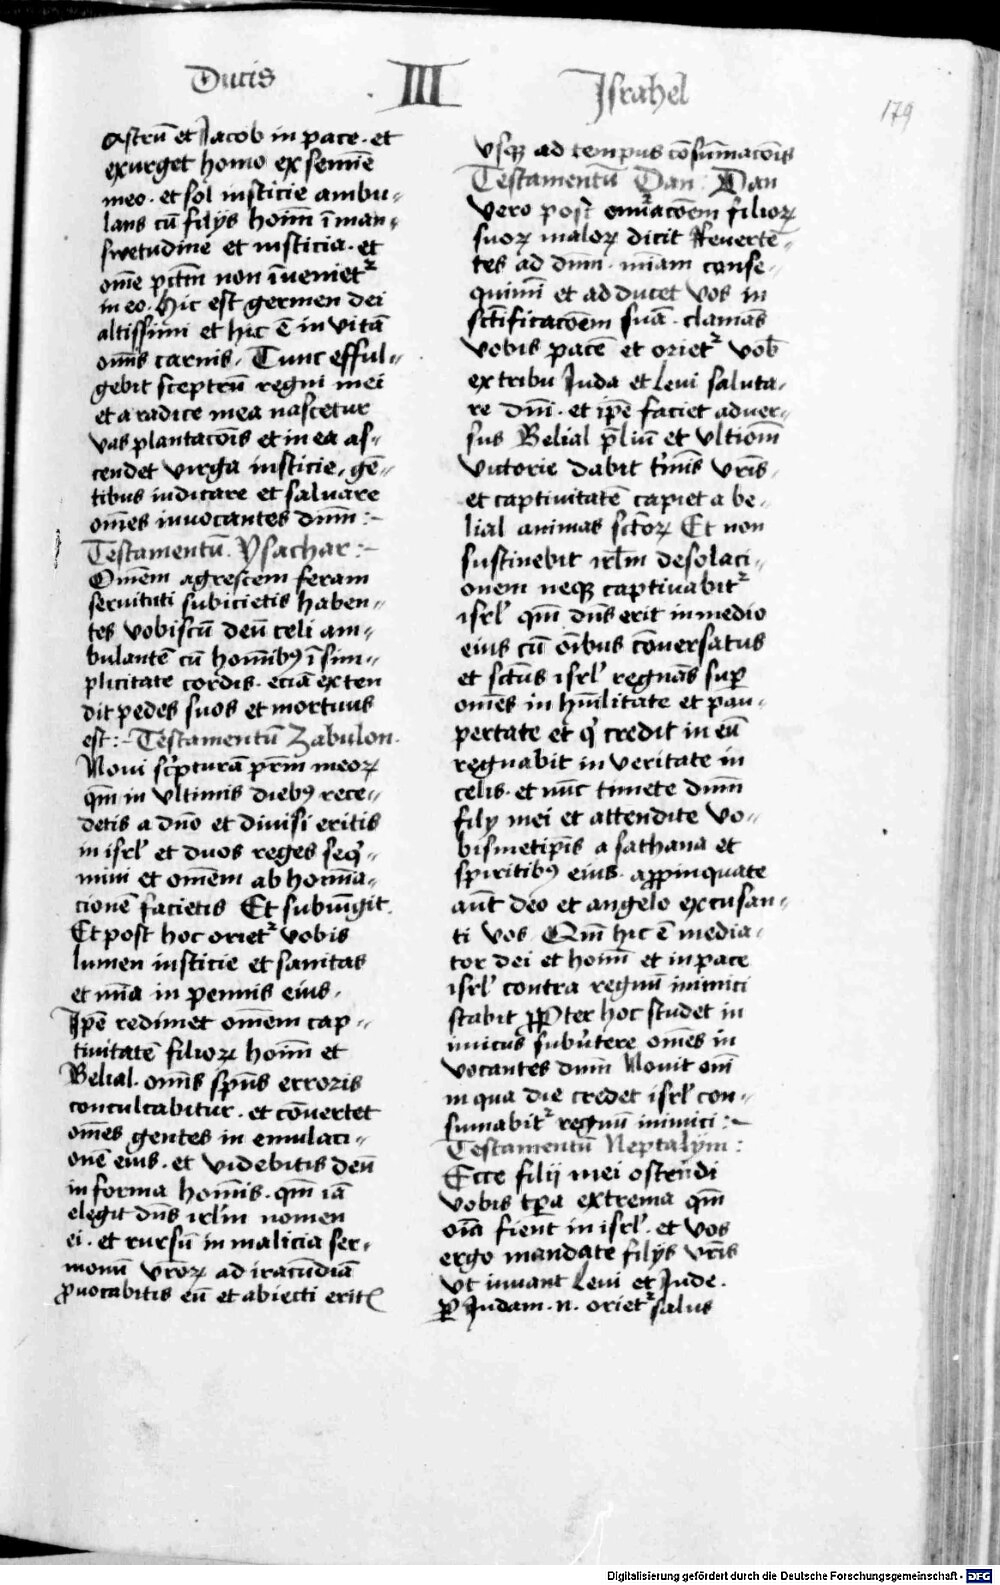 Ducis III Israhel
179
astrū et Jacob in pace · et
exurget homo ex semīe
meo · et sol iusticie ambu-
lans cū filijs homī ī man-
swetudine et iusticia · et
om̄e pctm̄ non īueniet
in eo · Hic est germen dei
altissimi et hic ē in vitā
om̄is carnis · Tunc efful-
gebit sceptrū regni mei
et a radice mea nascetur
vas plantacōis et in ea as-
cendet virga iusticie · gē-
tibus iudicare et saluare
om̄es inuocantes dnm̄ :-
Testamentū Ysachar :-
Om̄em agrestem feram
seruituti subicietis haben-
tes vobiscū deū celi am-
bulantē cū homībꝰ ī sim-
plicitate cordis · eciā exten
dit pedes suos et mortuus
est :- Testamentū Zabulon ·
Noui sc̄pturā prm̄ meoꝝ
qm̄ in vltimis diebꝰ rece-
detis a dn̄o et diuisi eritis
in isrl̄ et duos reges seq̄-
mini et om̄em abhomīa-
cionē facietis Et subiūgit
Et post hoc oriet᷑ vobis
lumen iusticie et sanitas
et mīa in pennis eius ·
Ipē redimet om̄em cap-
tiuitatē filioꝝ homī et
Belial · om̄is spūs erroris
conculcabitur · et cōuertet
om̄es gentes in emulaci-
onē eius · et videbitis deū
in forma homīs · qm̄ iā
elegit dn̄s irl̄m nomen
ei · et rursū in malicia ser-
monū vr̄oꝝ ad iracūdiā
ꝓuocabitis eū et abiecti erit
vsqꝫ ad tempus cōsūmacōis
Testamentū Dan : Dan
vero post filioꝝ
suoꝝ maloꝝ dicit Reuertē-
tes ad dnm̄ · mīam conse-
quimī et adducet vos in
sctīficacōem suā · clamās
vobis pacē et oriet᷑ vob̄
ex tribu Juda et Leui saluta-
re dnī · et ipē faciet aduer-
sus Belial p̄liū et vltiom̄
victorie dabit vr̄is ·
et captiuitatē capiet a be-
lial animas sctoꝝ Et non
sustinebit irl̄m desolaci-
onem neqꝫ captiuabit᷑
isrl̄ qm̄ dn̄s erit in medio
eius cū oībus cōuersatus
et sctūs isrl̄ regnās suꝑ
om̄es in hūilitate et pau-
pertate et q̄ credit in eū
regnabit in veritate in
celis · et nūc timete dnm̄
filij mei et attendite vo-
bismetip̄is a sathana et
spiritibꝰ eius · aꝓpinquate
aūt deo et angelo excusan-
ti vos · Qm̄ hic ē media-
tor dei et homī et in pace
isrl̄ contra regnū inimici
stabit ꝓpter hoc studet in
imicus subūtere om̄es in
vocantes dnm̄ Nouit eni
in qua die credet isrl̄ con-
sumabit᷑ regnū inimici :-
Testamentū Neptalym :
Ecce filij mei ostendi
vobis tp̄a extrema qm̄
oīa fient in isrl̄ · et vos
ergo mandate filijs vr̄is
vt iuuant Leui et Jude ·
ꝑ Judam · n · oriet᷑ salus
Digitalisierung gefördert durch die Deutsche Forschungsgemeinschaft - DFG